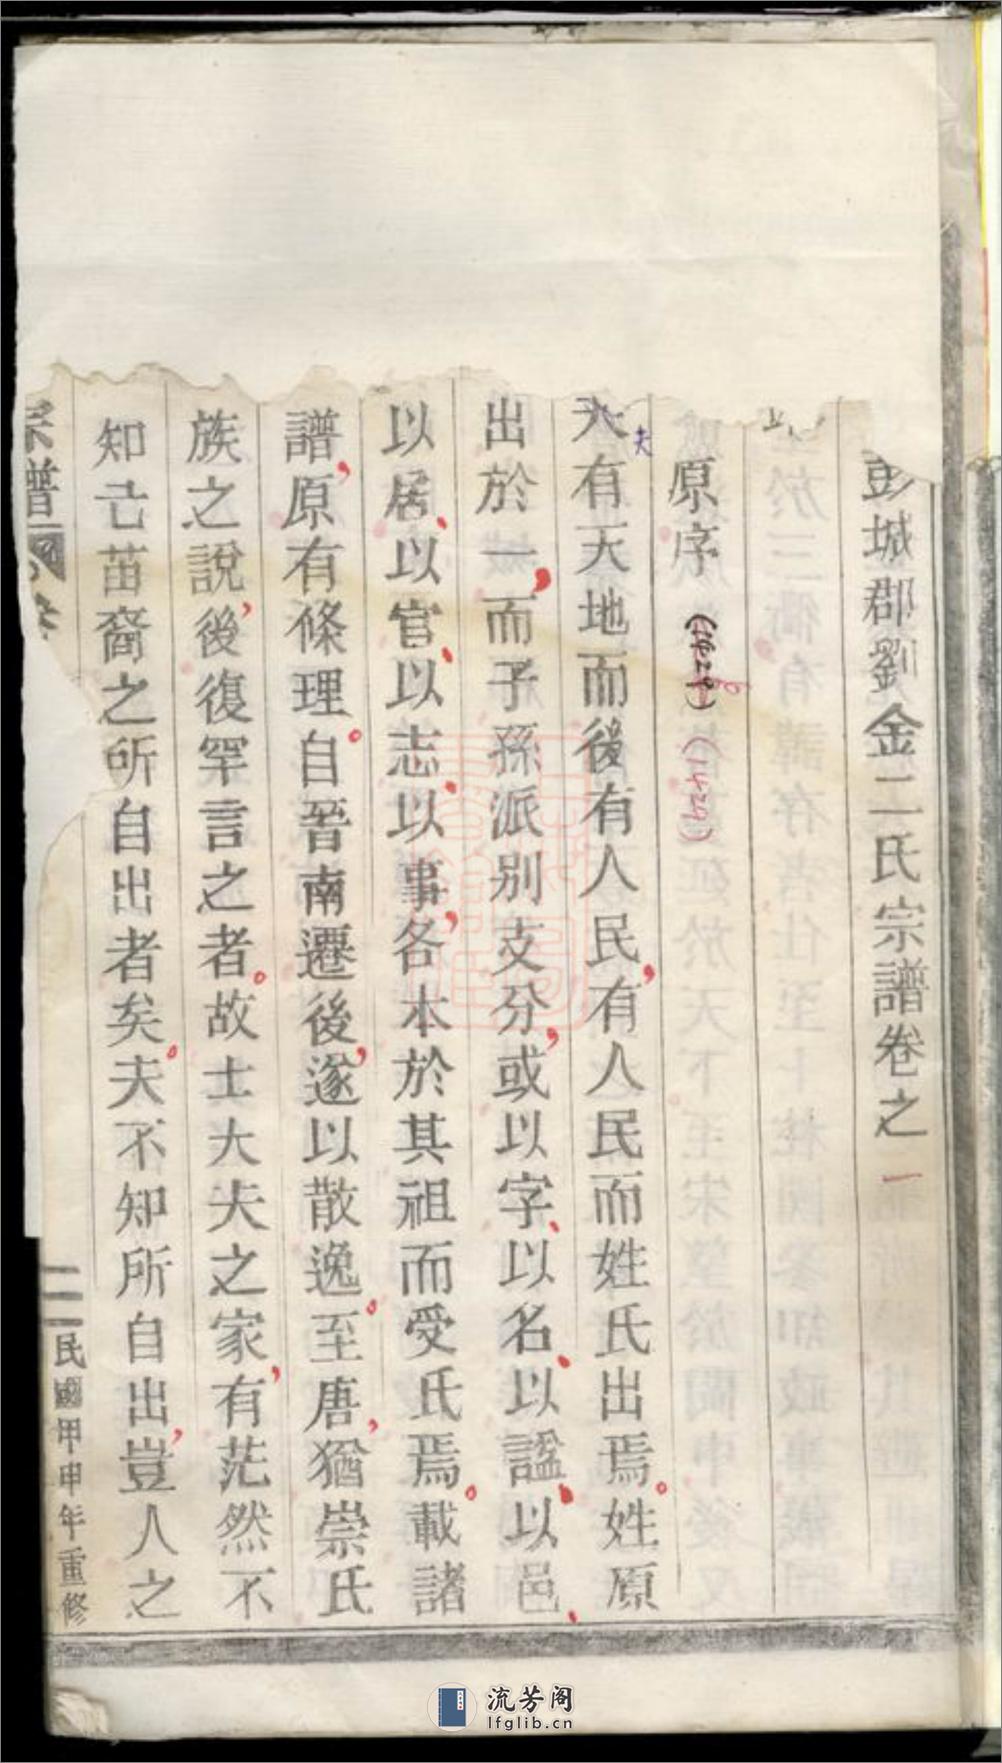 彭城郡劉金二氏宗譜卷之一
原序 (1429) (1429)
夫有天地而後有人民,有人民而姓氏出焉。姓原
夫
出於一,而子孫派别支分,或以字、以名、以諡、以邑、
以居、以官、以志、以事,各本於其祖而受氏焉。載諸
譜,原有條理。自晉南遷後,遂以散逸。至唐,猶崇氏
族之説,後復罕言之者。故士大夫之家,有茫然不
知己苗裔之所自出者矣。夫不知所自出,豈人之
宗譜
卷
二
民國甲申年重修
流芳阁
lfglib.cn